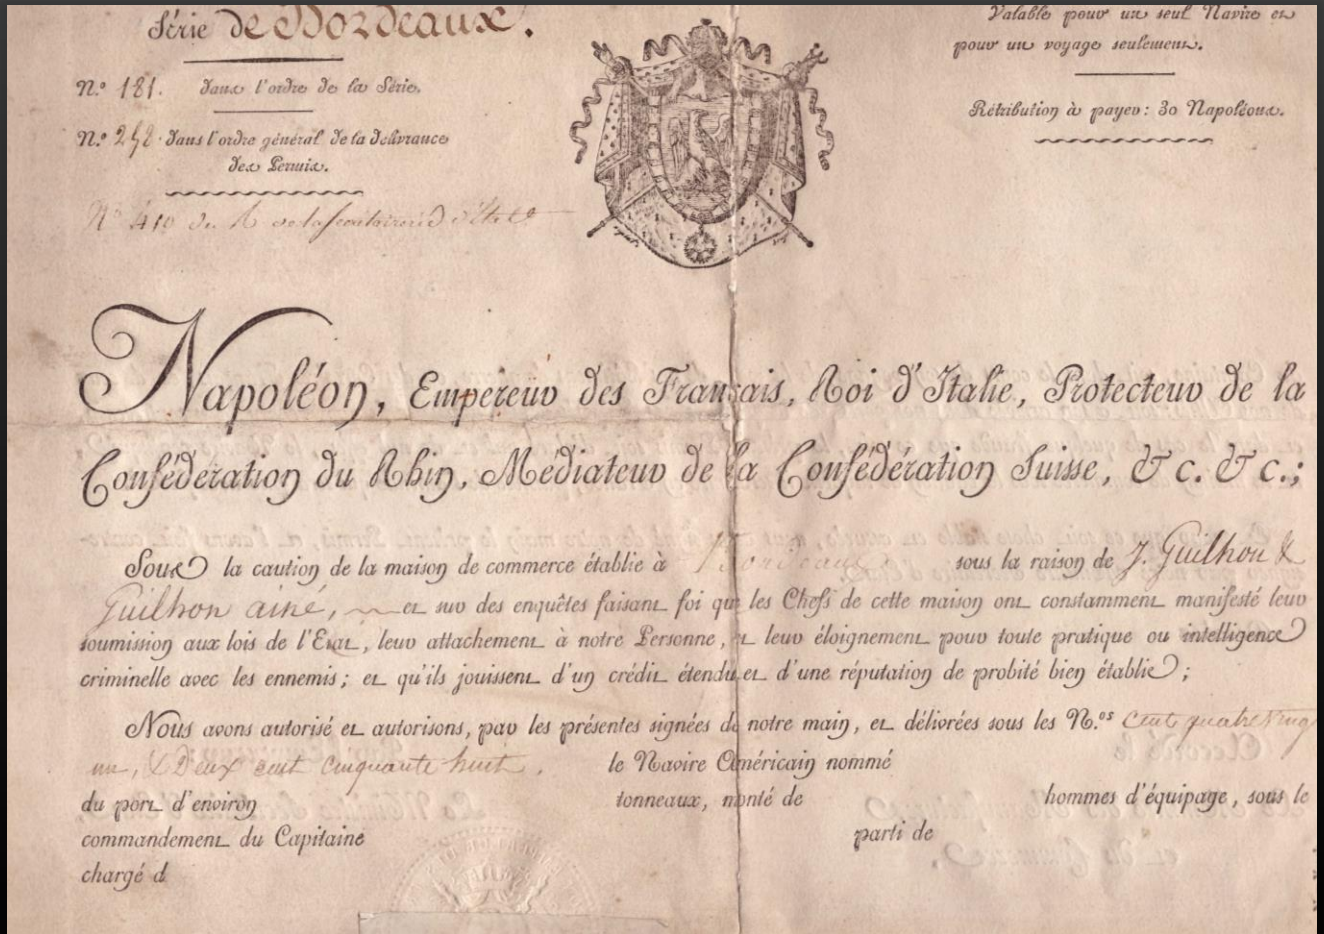 Série de Bordeaux.
N.º 181. dans l'ordre de la Série.
N.º 258. dans l'ordre général de la délivrance
des Permis.
N.º 410 du
Valable pour un seul Navire et
pour un voyage seulement.
Rétribution à payer : 30 Napoléons.
Napoléon, Empereur des Français, Roi d'Italie, Protecteur de la
Confédération du Rhin, Médiateur de la Confédération Suisse, & c. & c.;
Sous la caution de la maison de commerce établie à Bordeaux sous la raison de J. Guilhou &
Guilhou aîné, et sur des enquêtes faisant foi que les Chefs de cette maison ont constamment manifesté leur
soumission aux lois de l'Etat, leur attachement à notre Personne, et leur éloignement pour toute pratique ou intelligence
criminelle avec les ennemis ; et qu'ils jouissent d'un crédit étendu et d'une réputation de probité bien établie ;
Nous avons autorisé et autorisons, par les présentes signées de notre main, et délivrées sous les N.os cent quatre vingt
un, & Deux cent cinquante huit. le Navire Américain nommé
du port d'environ tonneaux, monté de hommes d'équipage, sous le
commandement du Capitaine parti de
chargé d